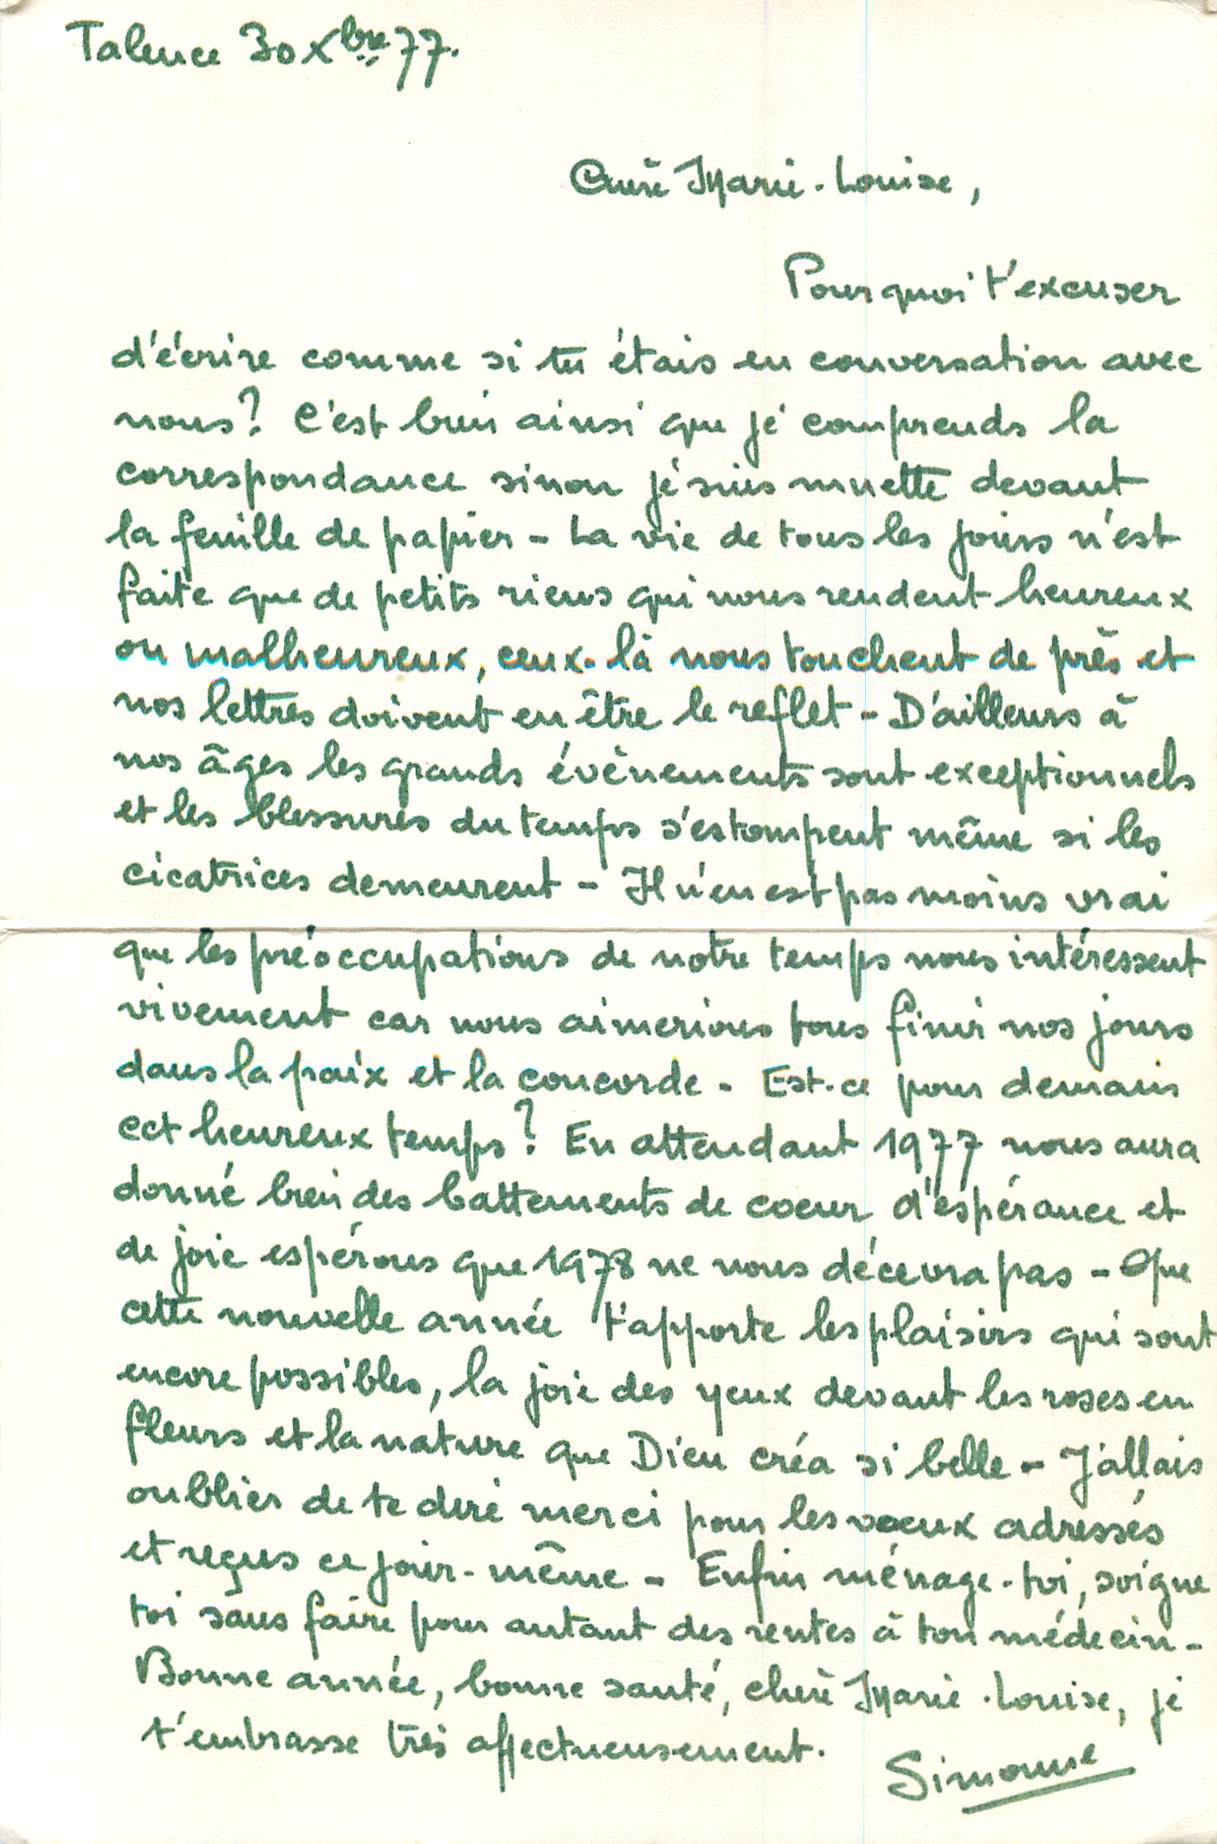 Talence 30 Xbre 77.
Chère Marie-Louise,
Pourquoi t'excuser
d'écrire comme si tu étais en conversation avec
nous? C'est bien ainsi que je comprends la
correspondance sinon je suis muette devant
la feuille de papier - La vie de tous les jours n'est
faite que de petits riens qui nous rendent heureux
ou malheureux, ceux-là nous touchent de près et
nos lettres doivent en être le reflet - D'ailleurs à
nos âges les grands évènements sont exceptionnels
et les blessures du temps s'estompent même si les
cicatrices demeurent - Il n'en est pas moins vrai
que les préoccupations de notre temps nous intéressent
vivement car nous aimerions tous finir nos jours
dans la paix et la concorde - Est-ce pour demain
cet heureux temps? En attendant 1977 nous aura
donné bien des battements de coeur d'espérance et
de joie espérons que 1978 ne nous décevra pas - Que
cette nouvelle année t'apporte les plaisirs qui sont
encore possibles, la joie des yeux devant les roses en
fleurs et la nature que Dieu créa si belle - J'allais
oublier de te dire merci pour les voeux adressés
et reçus ce jour-même - Enfin ménage-toi, soigne
toi sans faire pour autant des rentes à ton médecin -
Bonne année, bonne santé, chère Marie-Louise, je
t'embrasse très affectueusement.
Simonne